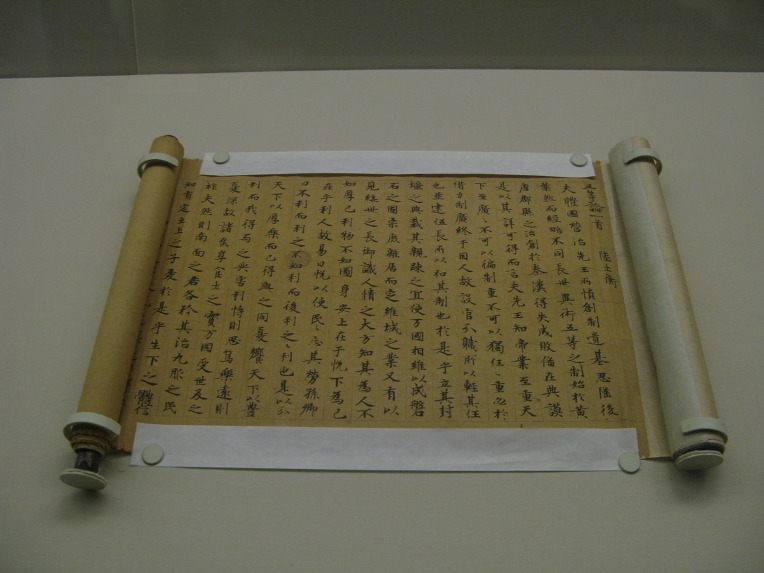 五等論一首 陸士衡
夫體國營治先王所慎創制道基思隆後
葉然而經略不同長世異術五等之制始於黃
唐郡縣之治創於秦漢得失成敗備在典謨
是以其詳可得而言夫先王知帝業至重天
下至廣〻不可以偏制重不可以獨任〻重必於
借力制廣終于因人故設官分職所以輕其任
也並建伍長所以和其制也於是乎立其封
壃之典裁其親疎之宜使万國相維以成磐
石之固宗庶雜居而定維城之業又有以
見綏世之長御識人情之大方知其為人不
如厚己利物不如圖身安上在于悅下為己
在乎利人故易曰悅以使民〻忘其勞孫卿
曰不利而利之不如利而後利之〻利也是以分
天下以厚樂而己得與之同憂饗天下以豐
利而我得与之共害利博則恩篤樂遠則
憂深故諸侯享食土之實万國受世及之
祚夫然則南面之君各矜其治九服之民
知有定主上之子愛於是乎生下之體信